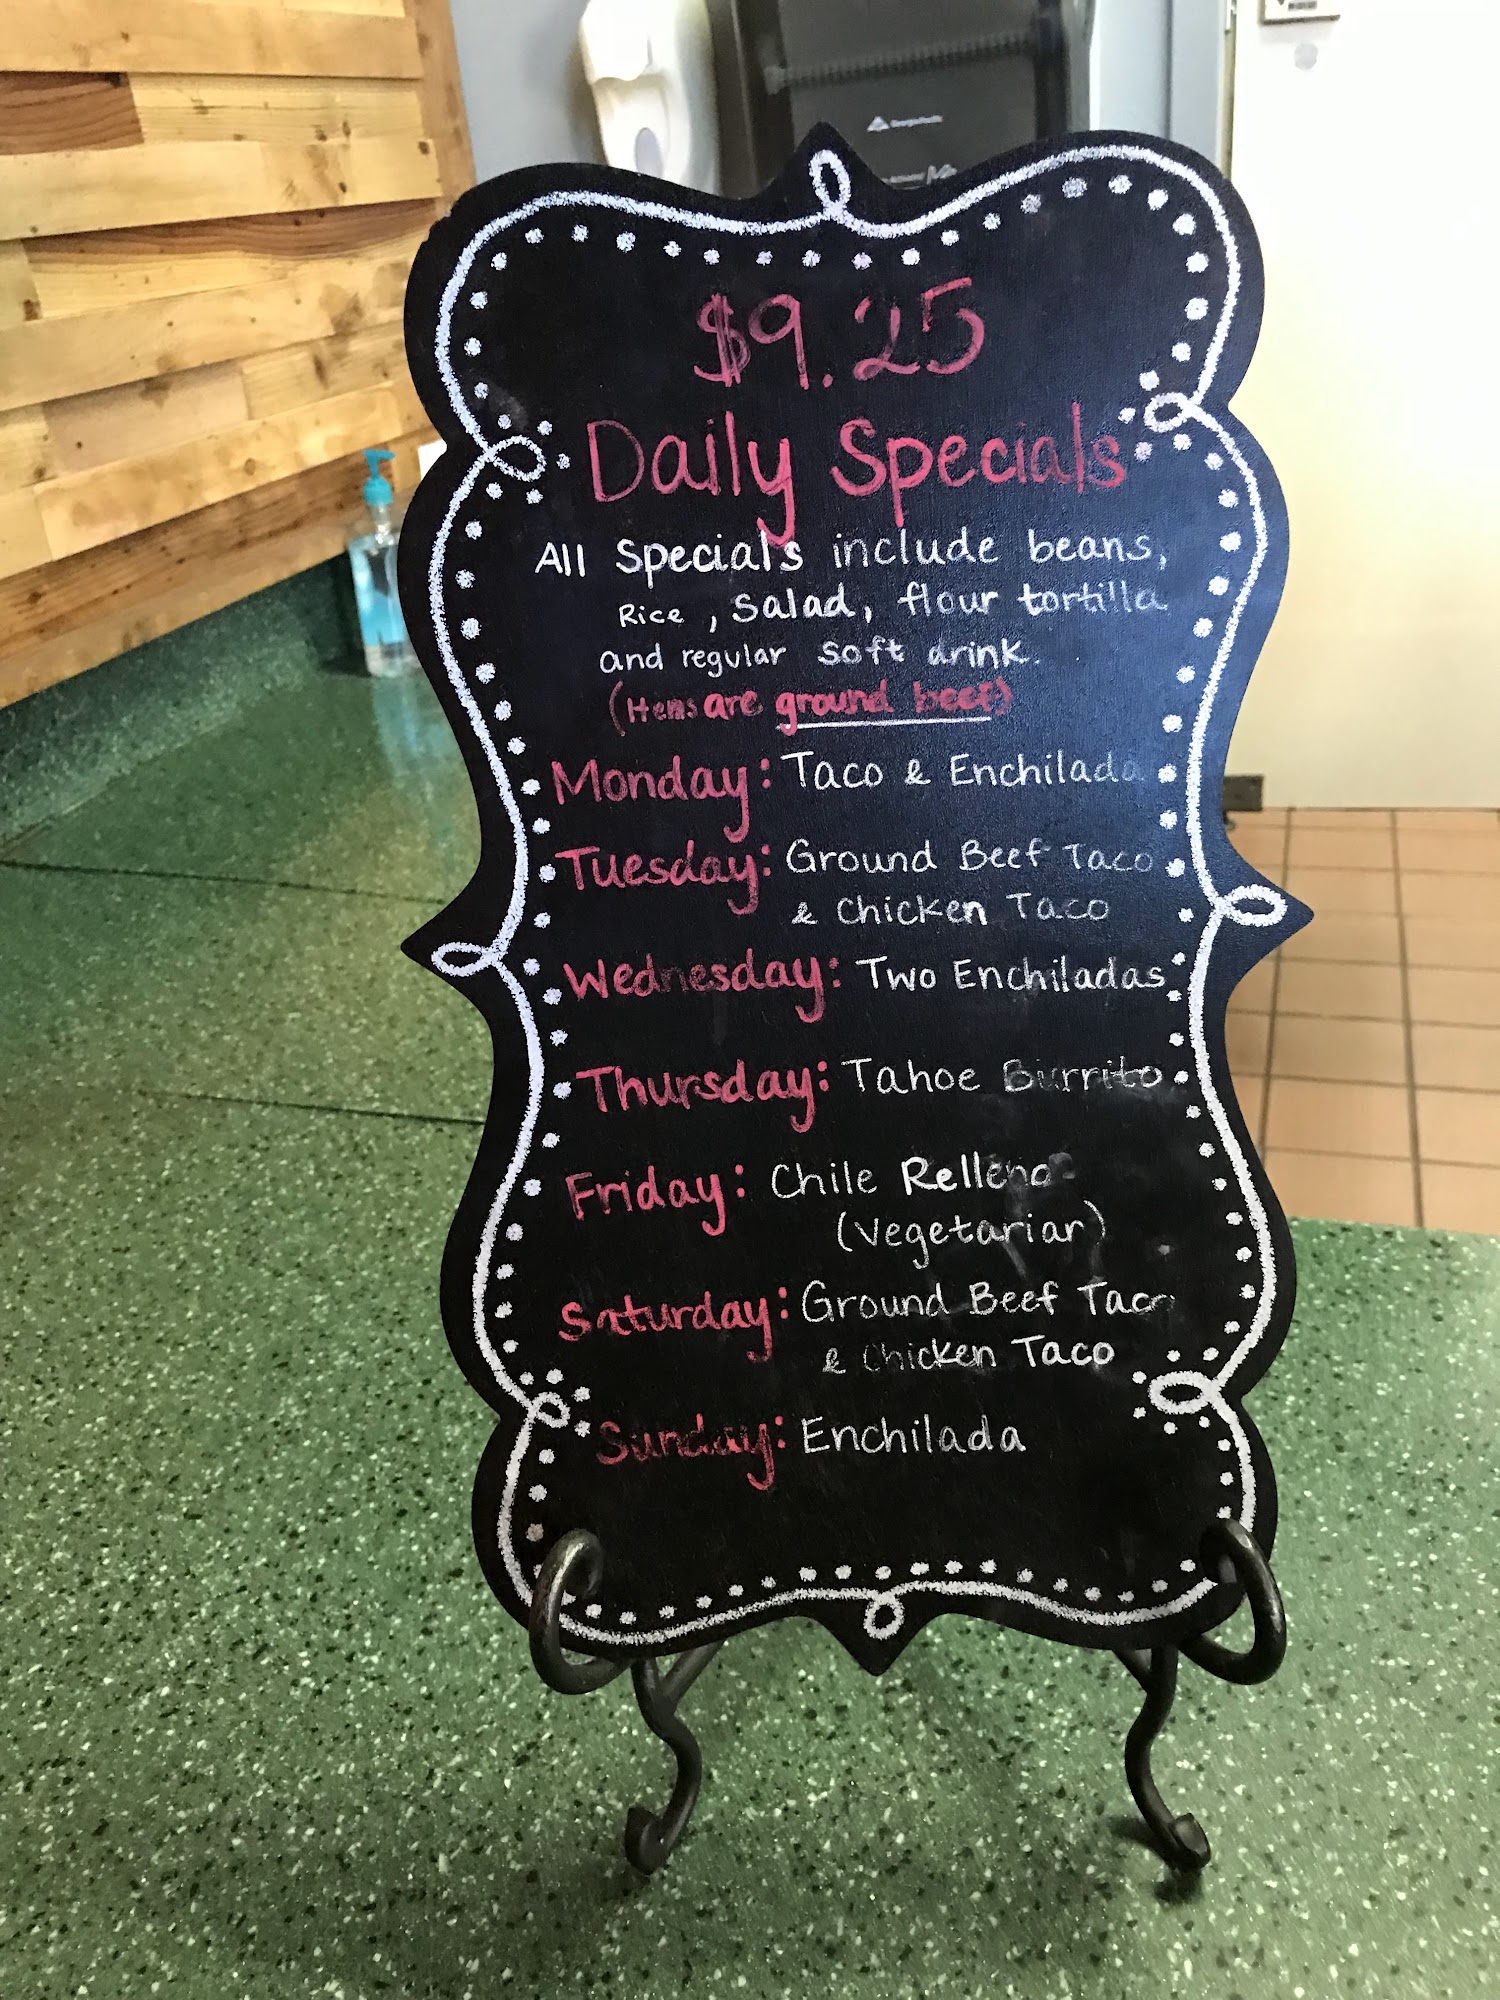 Georgia-Pacific
$9.25
Daily Specials
All Specials include beans,
Rice, Salad, flour tortilla
and regular soft drink.
(Items are ground beef)
Monday: Taco & Enchilada
Tuesday: Ground Beef Taco
& Chicken Taco
Wednesday: Two Enchiladas
Thursday: Tahoe Burrito
Friday: Chile Relleno
(Vegetarian)
Saturday: Ground Beef Taco
& Chicken Taco
Sunday: Enchilada